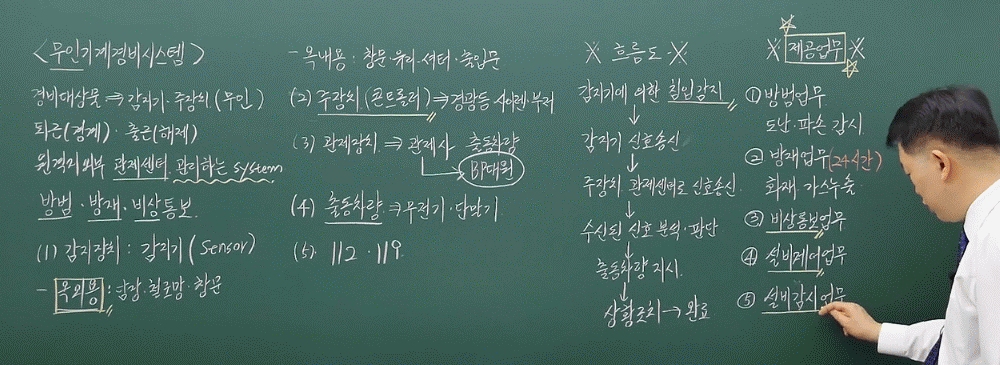 <무인기계경비시스템>
경비대상물 ⇒ 감지기·주장치(무인)
퇴근(경계)·출근(해제)
원격지 외부 관제센터 관리하는 system
방범·방재·비상통보
(1) 감지장치: 감지기(Sensor)
- 옥외용: 담장·철조망·창문
- 옥내용: 창문·유리·셔터·출입문
(2) 주장치(콘트롤러) ⇒ 경광등 사이렌·부저
(3) 관제장치 ⇒ 관제사 출동차량
BP대원
(4) 출동차량 ⇒ 무전기·단말기
(5). 112·119
※ 흐름도 ※
감지기에 의한 침입감지
↓
감지기 신호송신
↓
주장치 관제센터로 신호송신
↓
수신된 신호 분석·판단
↓
출동차량 지시
↓
상황조치 → 완료
※ 제공업무 ※
① 방범업무
도난·파손 감시
② 방재업무(24시간)
화재 가스누출
③ 비상통보업무
④ 설비제어업무
⑤ 설비감시업무